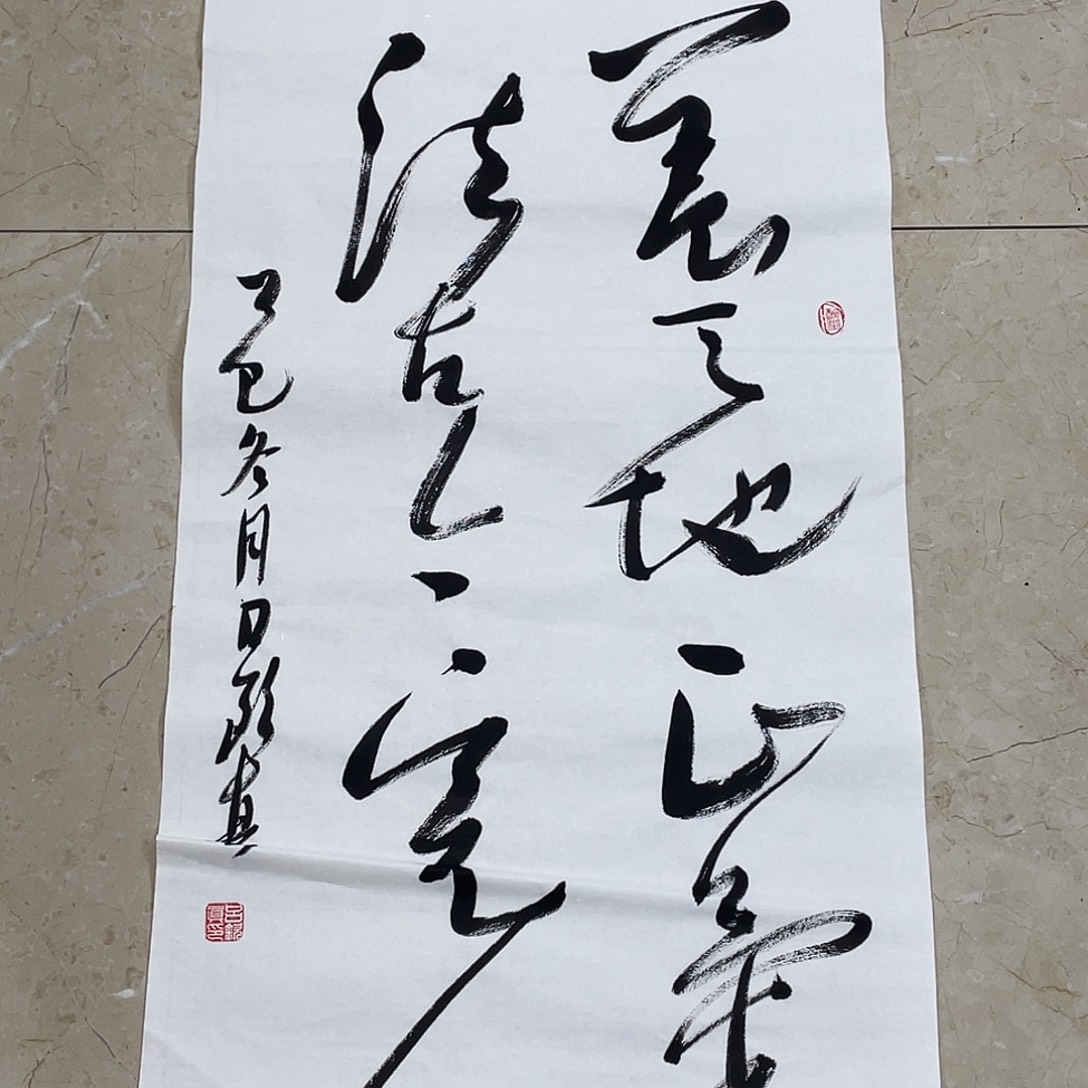 養天地正氣
法古今完人
乙巳冬月